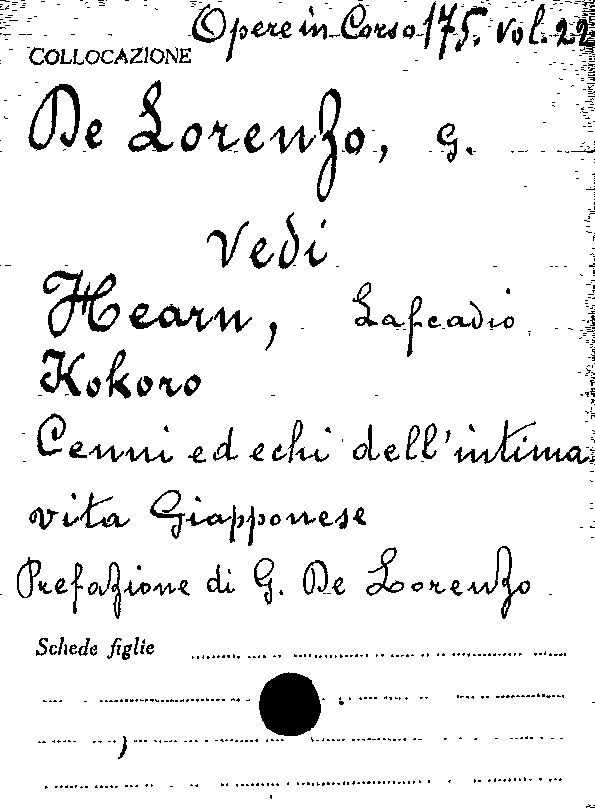 Opere in Corso 175. Vol. 22
COLLOCAZIONE
De Lorenzo, G.
Vedi
Hearn, Lafcadio
Kokoro
Cenni ed echi dell'intima
vita Giapponese
Prefazione di G. De Lorenzo
Schede figlie